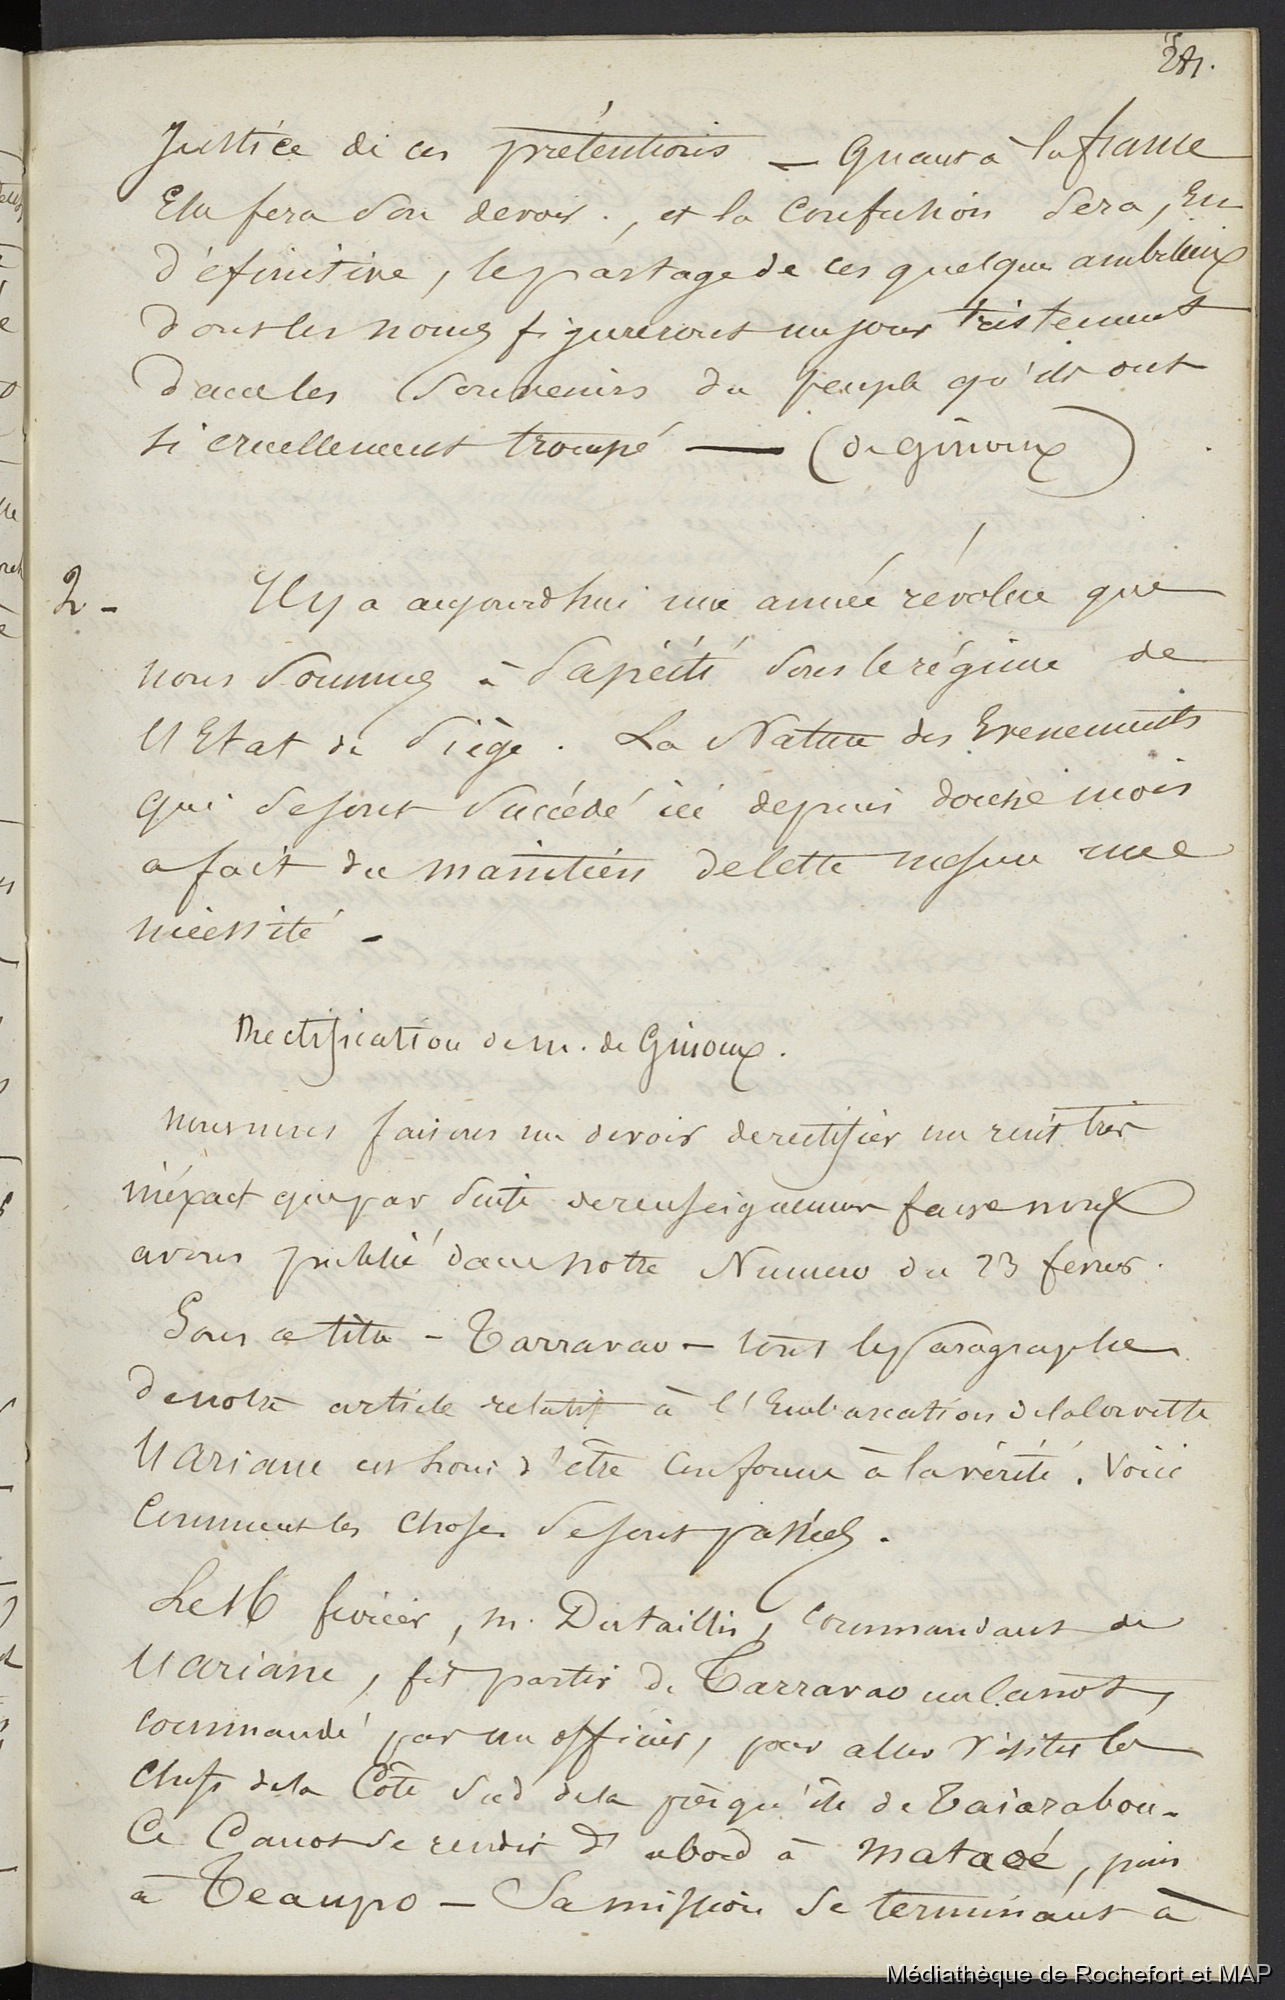 Justice de ces prétentions — Quant à la france
Elle fera son devoir., et la confusion sera, En
définitive, le partage de ces quelques ambitieux
dont les noms figureront un jour tristement
dans les souvenirs du peuple qu'ils ont
si cruellement trompé — (de Ginoux)
2 - Il y a aujourdhui une année révolue que
nous sommes à Papéïti sous le régime de
l'Etat de siège. La Nature des Evenements
qui se sont succédé ici depuis douze mois
a fait du maintien de cette mesure une
nécessité -
Rectification de m. de Ginoux.
nous nous faisons un devoir de rectifier un récit très
inéxact que par suite de renseignemens faux nous
avons publié dans notre Numero du 23 février.
Sous ce titre - Tarravao - tout le paragraphe
de notre article relatif à l'Embarcation de la corvette
l'Ariane est loin d'être conforme à la vérité. Voici
comment les choses se sont passées.
Le 16 février, m. Dutaillis, commandant de
l'Ariane, fit partir de Tarravao un canot,
commandé par un officier, pour aller visiter les
chefs de la Côte sud de la presqu'île de Taiarabou-
Ce Canot se rendit d'abord à Mataoé, puis
à Teaupo — Sa mission se terminant à
Médiathèque de Rochefort et MAP